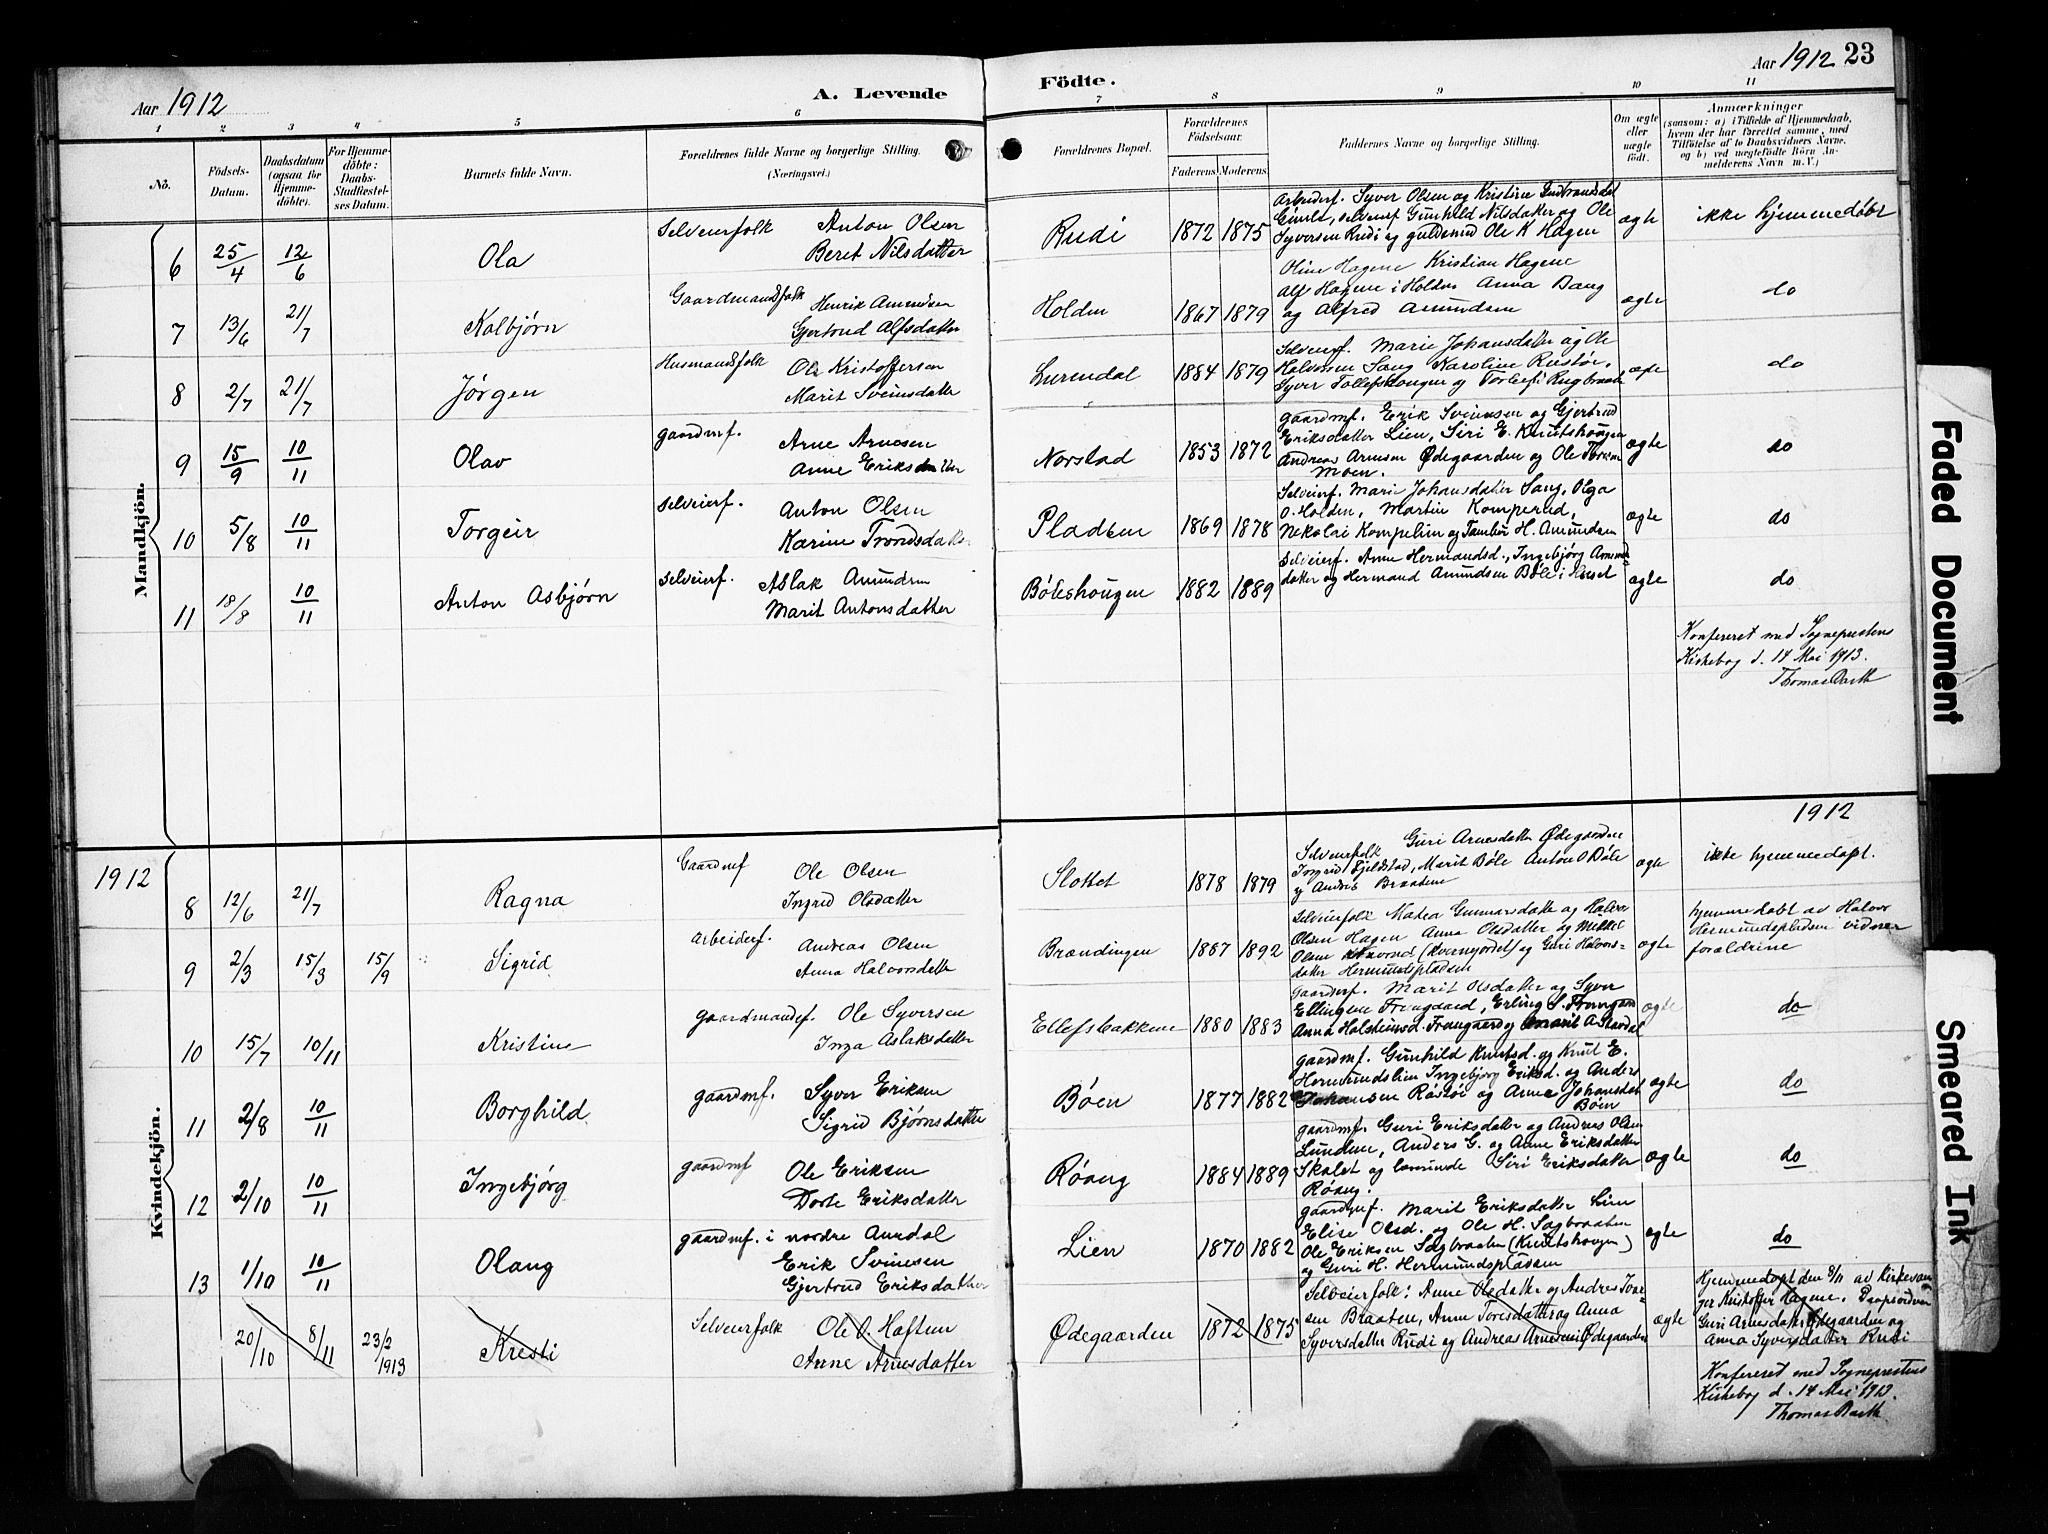 Aar 1912
A. Levende
Födte.
Aar 1912 23
1 2 3 4 5 6 7 8 9 10 11
No.
Födsels-
Datum.
Daabsdatum
(ogsaa for
Hjemme-
döbte).
For Hjemme-
döbte:
Daabs-
Stadfæstel-
ses Datum.
Barnets fulde Navn.
Forældrenes fulde Navne og borgerlige Stilling.
(Næringsvei.)
Forældrenes Bopæl.
Forældrenes
Födselsaar.
Faderens. Moderens.
Faddernes Navne og borgerlige Stilling.
Om ægte
eller
uægte
födt.
Anmærkninger
(saasom: a) i Tilfælde af Hjemmedaab,
hvem der har forrettet samme, med
Tilföielse af to Daabsvidners Navne,
og b) ved uægtefödte Börn An-
melderens Navn m. V.)
Mandkjön.
6 25/4 12/6 Ola
Selveierfolk Anton Olsen
Beret Nilsdatter
Rudi 1872 1875
Arbeiderf. Syver Olsen og Kristine Gudbrandsdat
Gimle, selveierf Gunhild Nilsdatter og Ole
Syversen Rudi og guldsmed Ole K Hagen
ægte ikke hjemmedøbt
7 13/6 21/7 Kolbjørn
Gaardmandsfolk Henrik Amundsen
Gjertrud Alfsdatter
Holden 1867 1879
Oline Hagene Kristian Hagene
Alf Hagene i Holden Anna Bang
og Alfred Amundsen
ægte do
8 2/7 21/7 Jørgen
Husmandsfolk Ole Kristoffersen
Marit Svensdatter
Lurendal 1884 1879
Selveierf. Marie Johansdatter og Ole
Halvorsen Sang Karoline Rustøe,
Syver Tollefshougen og Torleif Rugbraate
ægte do
9 15/9 10/11 Olav
gaardmf. Arne Arnesen
Anne Eriksdatter
Norstad 1853 1872
gaardmf. Erik Svensen og Gjertrud
Eriksdatter Lien, Siri E. Knutshougen
Andreas Arnesen Ødegaarden og Ole
Moen.
ægte do
10 5/8 10/11 Torgeir
selveierf. Anton Olsen
Karine Trondsdatter
Pladsen 1869 1878
Selveierf. Marie Johansdatter Sang, Olga
O. Holden, Martin Komperud,
Nikolai Kompelien og Tambur H. Amundsen
ægte do
11 18/8 10/11 Anton Asbjørn
selveierf. Aslak Amundsen
Marit Antonsdatter
Böleshougen 1882 1889
Selveierf. Anne Hermandsd., Ingebjørg Arnes-
datter og Hermand Amundsen Böle i Huset
ægte do
Konfereret med Sogneprestens
Kirkebog d. 14 Mai 1913.
Thomas Barth
1912
Kvindekjön.
1912
8 12/6 21/7 Ragna
Gaardmf Ole Olsen
Ingrid Olsdatter
Slottet 1878 1879
Guri Arnesdatter Ødegaarden
Selveierfolk
Ingrid Fjeldstad, Marit Böle Anton O Böle
og Andris Braatene
ægte ikke hjemmedøpt.
9 2/3 15/3 15/9 Sigrid
Arbeiderf. Andreas Olsen
Anna Halvorsdatter
Brændingen 1887 1892
Selveierfolk Matea Gunnarsdatter og Halvor
Olsen Hagen Anna Olsdatter og Mikkel
Olsen (Kvernjordet) og Guri Halvors-
datter Hermundspladsen
ægte hjemmedøbt av Halvor
Hermundspladsen vidner
forældrene
10 15/7 10/11 Kristine
gaardmandsf. Ole Syversen
Inga Aslaksdatter
Ellefsbakkene 1880 1883
Gaardmf. Marit Olsdatter og Syver
Ellingene Frongaard, Erling S. Frongaard
Anna Halsteinsd. Frongaard og Marit A Stavdal
ægte do
11 2/8 10/11 Borghild
gaardmf. Syver Eriksen
Sigrid Bjørnsdatter
Bøen 1877 1882
gaardmf. Gunhild Knutsd. og Knut E.
Hermundslien Ingebjørg Eriksd. og Anders
Johansen Røstøe og Anne Johansdat
Bøen
ægte do
12 2/10 10/11 Ingebjørg
gaardmf Ole Eriksen
Dorte Eriksdatter
Røang 1884 1889
gaardmf. Guri Eriksdatter og Andreas Olsen
Lundene, Anders G. og Anne Eriksdatter
Skolet og Siri Eriksdatter
Røang.
ægte do
13 1/10 10/11 Olaug
gaardmf. i nordre Aurdal
Erik Svensen
Gjertrud Eriksdatter
Lien 1870 1882
gaardmf. Marit Eriksdatter Lien
Elise Olsd. og Ole H. Sagbraaten
Ole Eriksen Sagbraaten (Knutshougen)
og Guri H. Hermundspladsen
ægte do
20/10 8/11 23/2 1913 Kresti
Selveierfolk Ole O. Haften
Anne Arnesdatter
Ødegaarden 1872 1875
Selveierfolk: Anne Olsdatter og Andres Iver-
sen Braaten, Anne Toresdatter og Anna
Syversdatter Rudi og Andreas Arnesen Ødegaarden
ægte Hjemmedøpt den 8/11 av Kirkesan-
ger Kristoffer Hagene. Daapsvidner
Guri Arnesdatter Ødegaarden og
Anna Syversdatter Rudi
Konfereret med Sogneprestens
Kirkebog d. 14 Mai 1913.
Thomas Barth
Faded Document
Smeared Ink